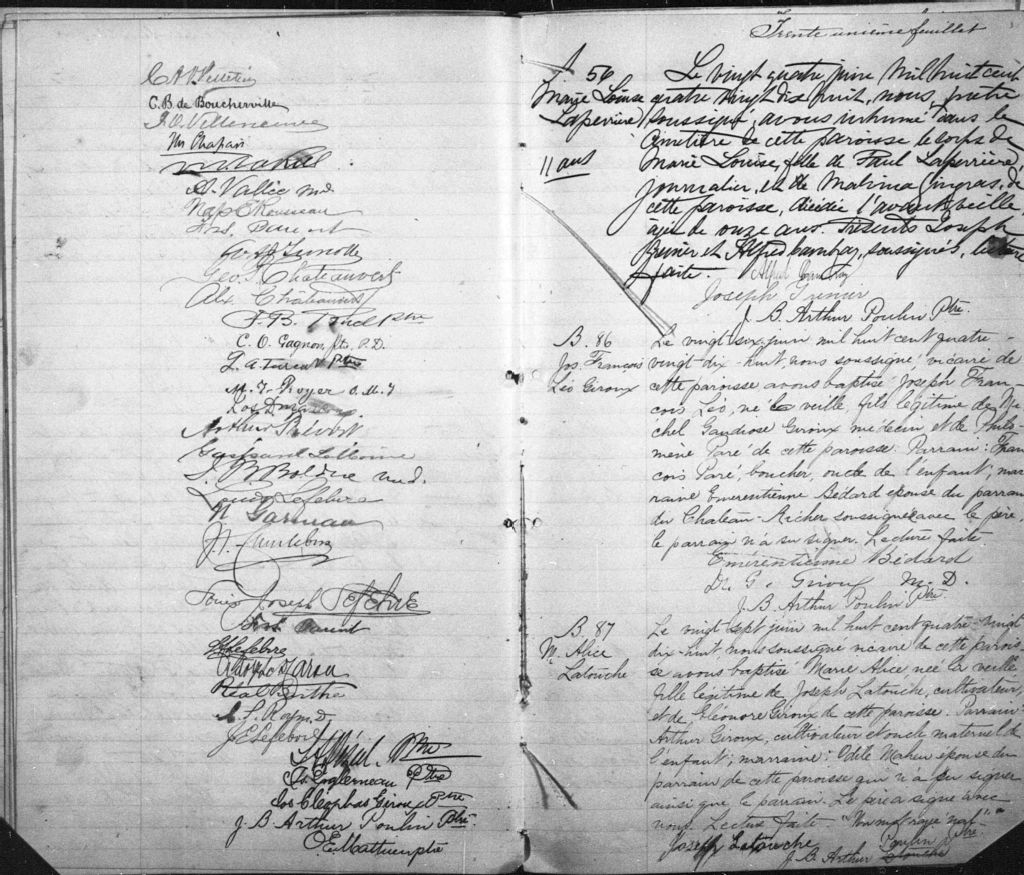 C. B. de Boucherville
J. O. Villeneuve
Ths Chapais
A. Vallée m.d.
Nap. E. Rousseau
Geo. T. Chateauvert
Alx. Chateauvert
J. B. Ptre
C. O. Gagnon, ptr, P. D.
Ptre
M. T. Royer O. M. I
Arthur
J. B. Boldue m.d.
Louis Lefebvre
N. Garneau
Louis Joseph Lefebvre
Parent
Lefebvre
Berthe
Raymond
J. E. Lefebvre
Ptre
Ptre
Jos Cléophas Giroux Ptre
J. B. Arthur Poulin Ptre.
O. E. Mathieu ptre
Trente unième feuillet
S. 56
Marie Louise
Laperrière
11 ans
Le vingt quatre juin mil huit cent
quatre vingt dix huit, nous, prêtre
soussigné, avons inhumé dans le
cimetière de cette paroisse le corps de
Marie Louise, fille de Paul Laperrière
journalier, et de Malvina Gingras, de
cette paroisse, décédée l'avant veille,
âgée de onze ans. Présents Joseph
Grenier et Alfred soussignés, lecture
faite. Alfred
Joseph Grenier
J. B. Arthur Poulin Ptre.
B. 86
Jos. François
Léo Giroux
Le vingt six juin mil huit cent quatre-
vingt dix-huit nous soussigné, vicaire de
cette paroisse avons baptisé Joseph Fran-
çois Léo, né la veille, fils légitime de Mi-
chel Gaudiose Giroux médecin et de Philo-
mène Paré de cette paroisse. Parrain: Fran-
çois Paré, boucher, oncle de l'enfant, mar-
raine Emerentienne Bédard épouse du parrain
du Chateau-Richer soussignée avec le père,
le parrain n'a su signer. Lecture faite
Emérentienne Bédard
Dr. G. Giroux M. D.
J. B. Arthur Poulin Ptre.
B. 87
M. Alice
Latouche
Le vingt sept juin mil huit cent quatre-vingt
dix-huit nous soussigné vicaire de cette parois-
se avons baptisé Marie Alice, née la veille
fille légitime de Joseph Latouche, cultivateur,
et de Eléonore Giroux de cette paroisse. Parrain:
Arthur Giroux, cultivateur et oncle maternel de
l'enfant; marraine: Odile Maheu épouse du
parrain de cette paroisse qui n'a su signer
ainsi que le parrain. Le père a signé avec
nous. Lecture faite Un mot rayé nul.
Joseph Latouche
J. B. Arthur Latouche Poulin Ptre.